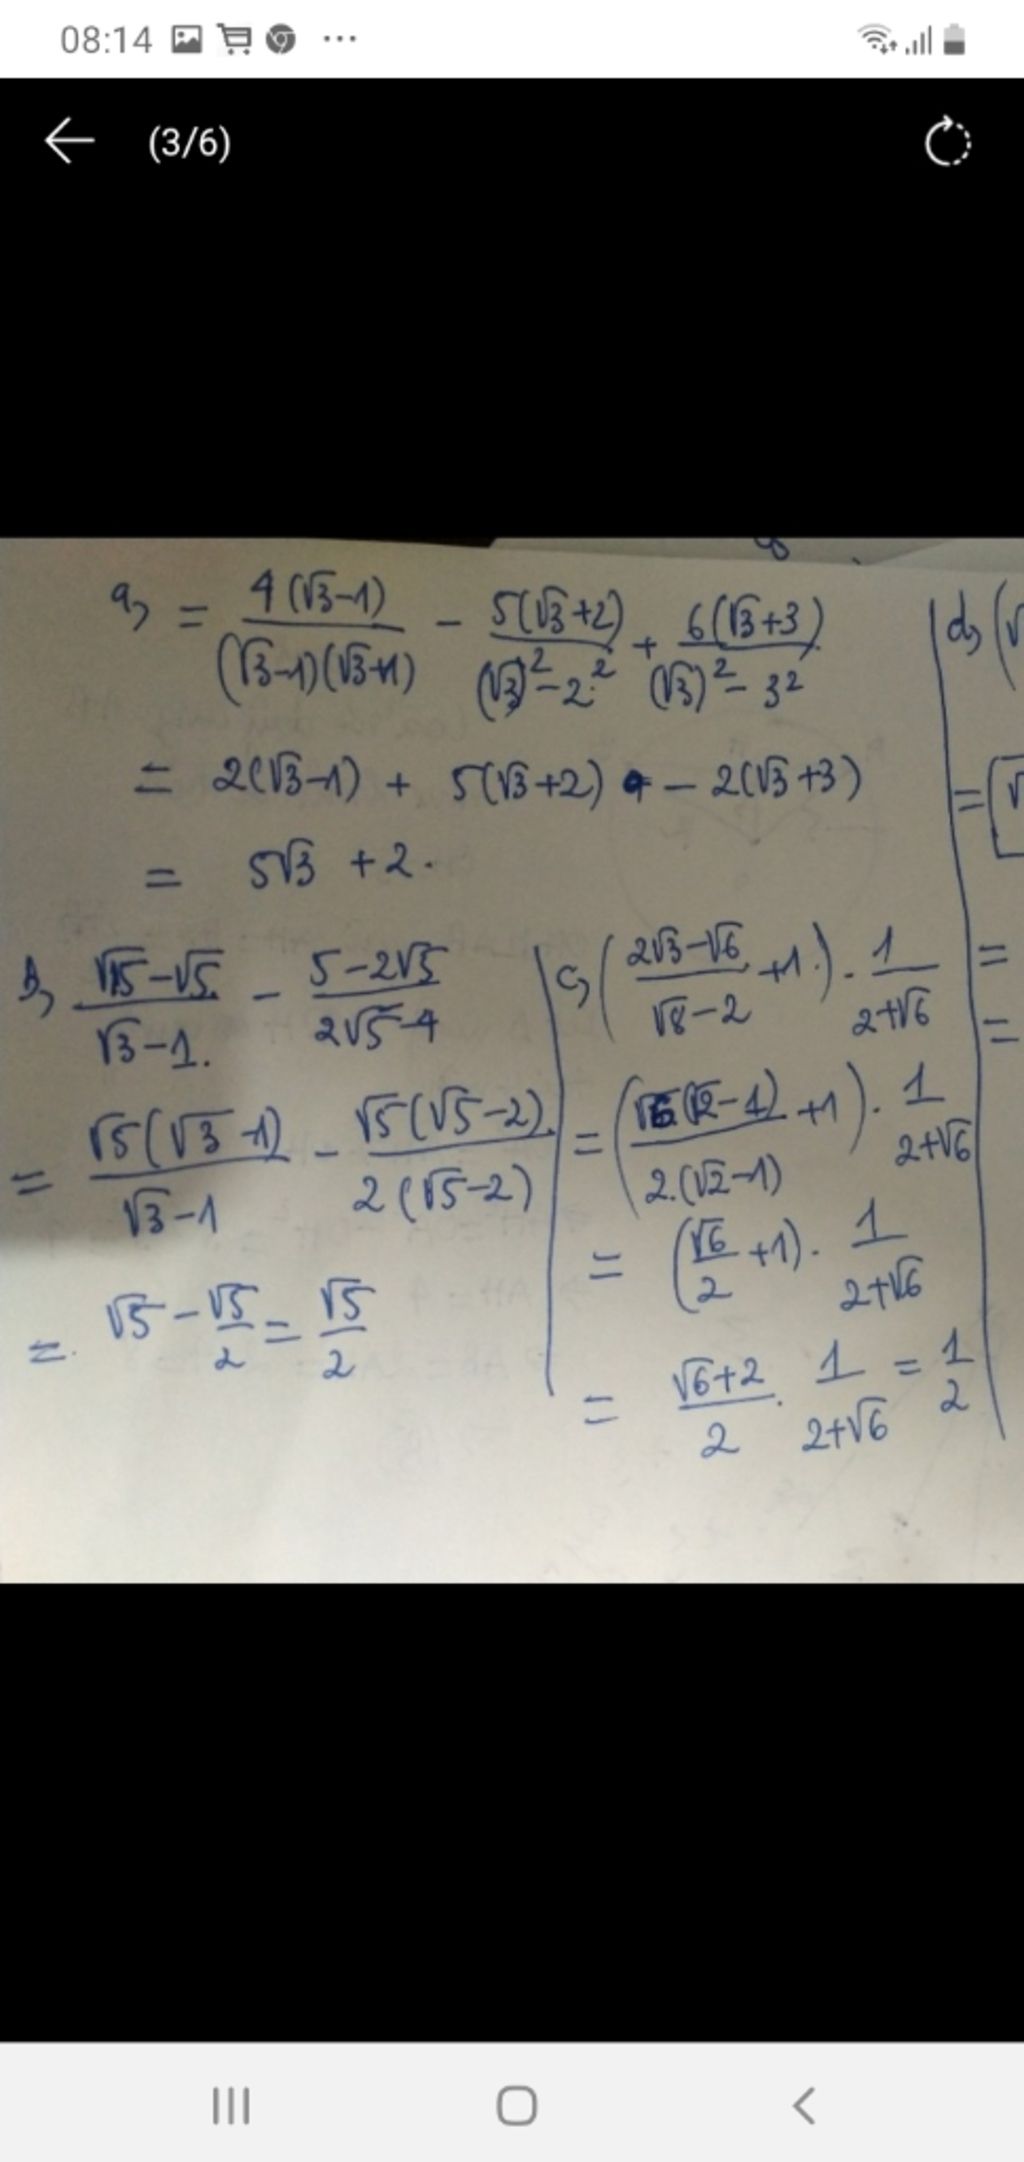 08:14
(3/6)
a, = 4(√3-1)/(√3-1)(√3+1) - 5(√3+2)/(√3)²-2² + 6(√3+3)/(√3)²-3²
= 2(√3-1) + 5(√3+2) - 2(√3+3)
= 5√3 + 2.
b, √15-√5/√3-1. - 5-2√5/2√5-4
= √5(√3-1)/√3-1 - √5(√5-2)/2(√5-2)
= √5 - √5/2 = √5/2
c, (2√3-√6/√8-2 +1) . 1/2+√6
= (√6(√2-1)/2.(√2-1) +1) . 1/2+√6
= (√6/2 +1) . 1/2+√6
= √6+2/2 . 1/2+√6 = 1/2
d, (√
= [√
=
=